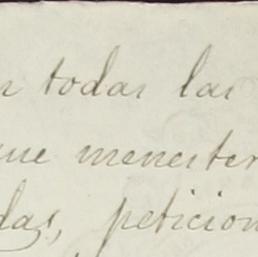 n todas las
que menester
das, peticion